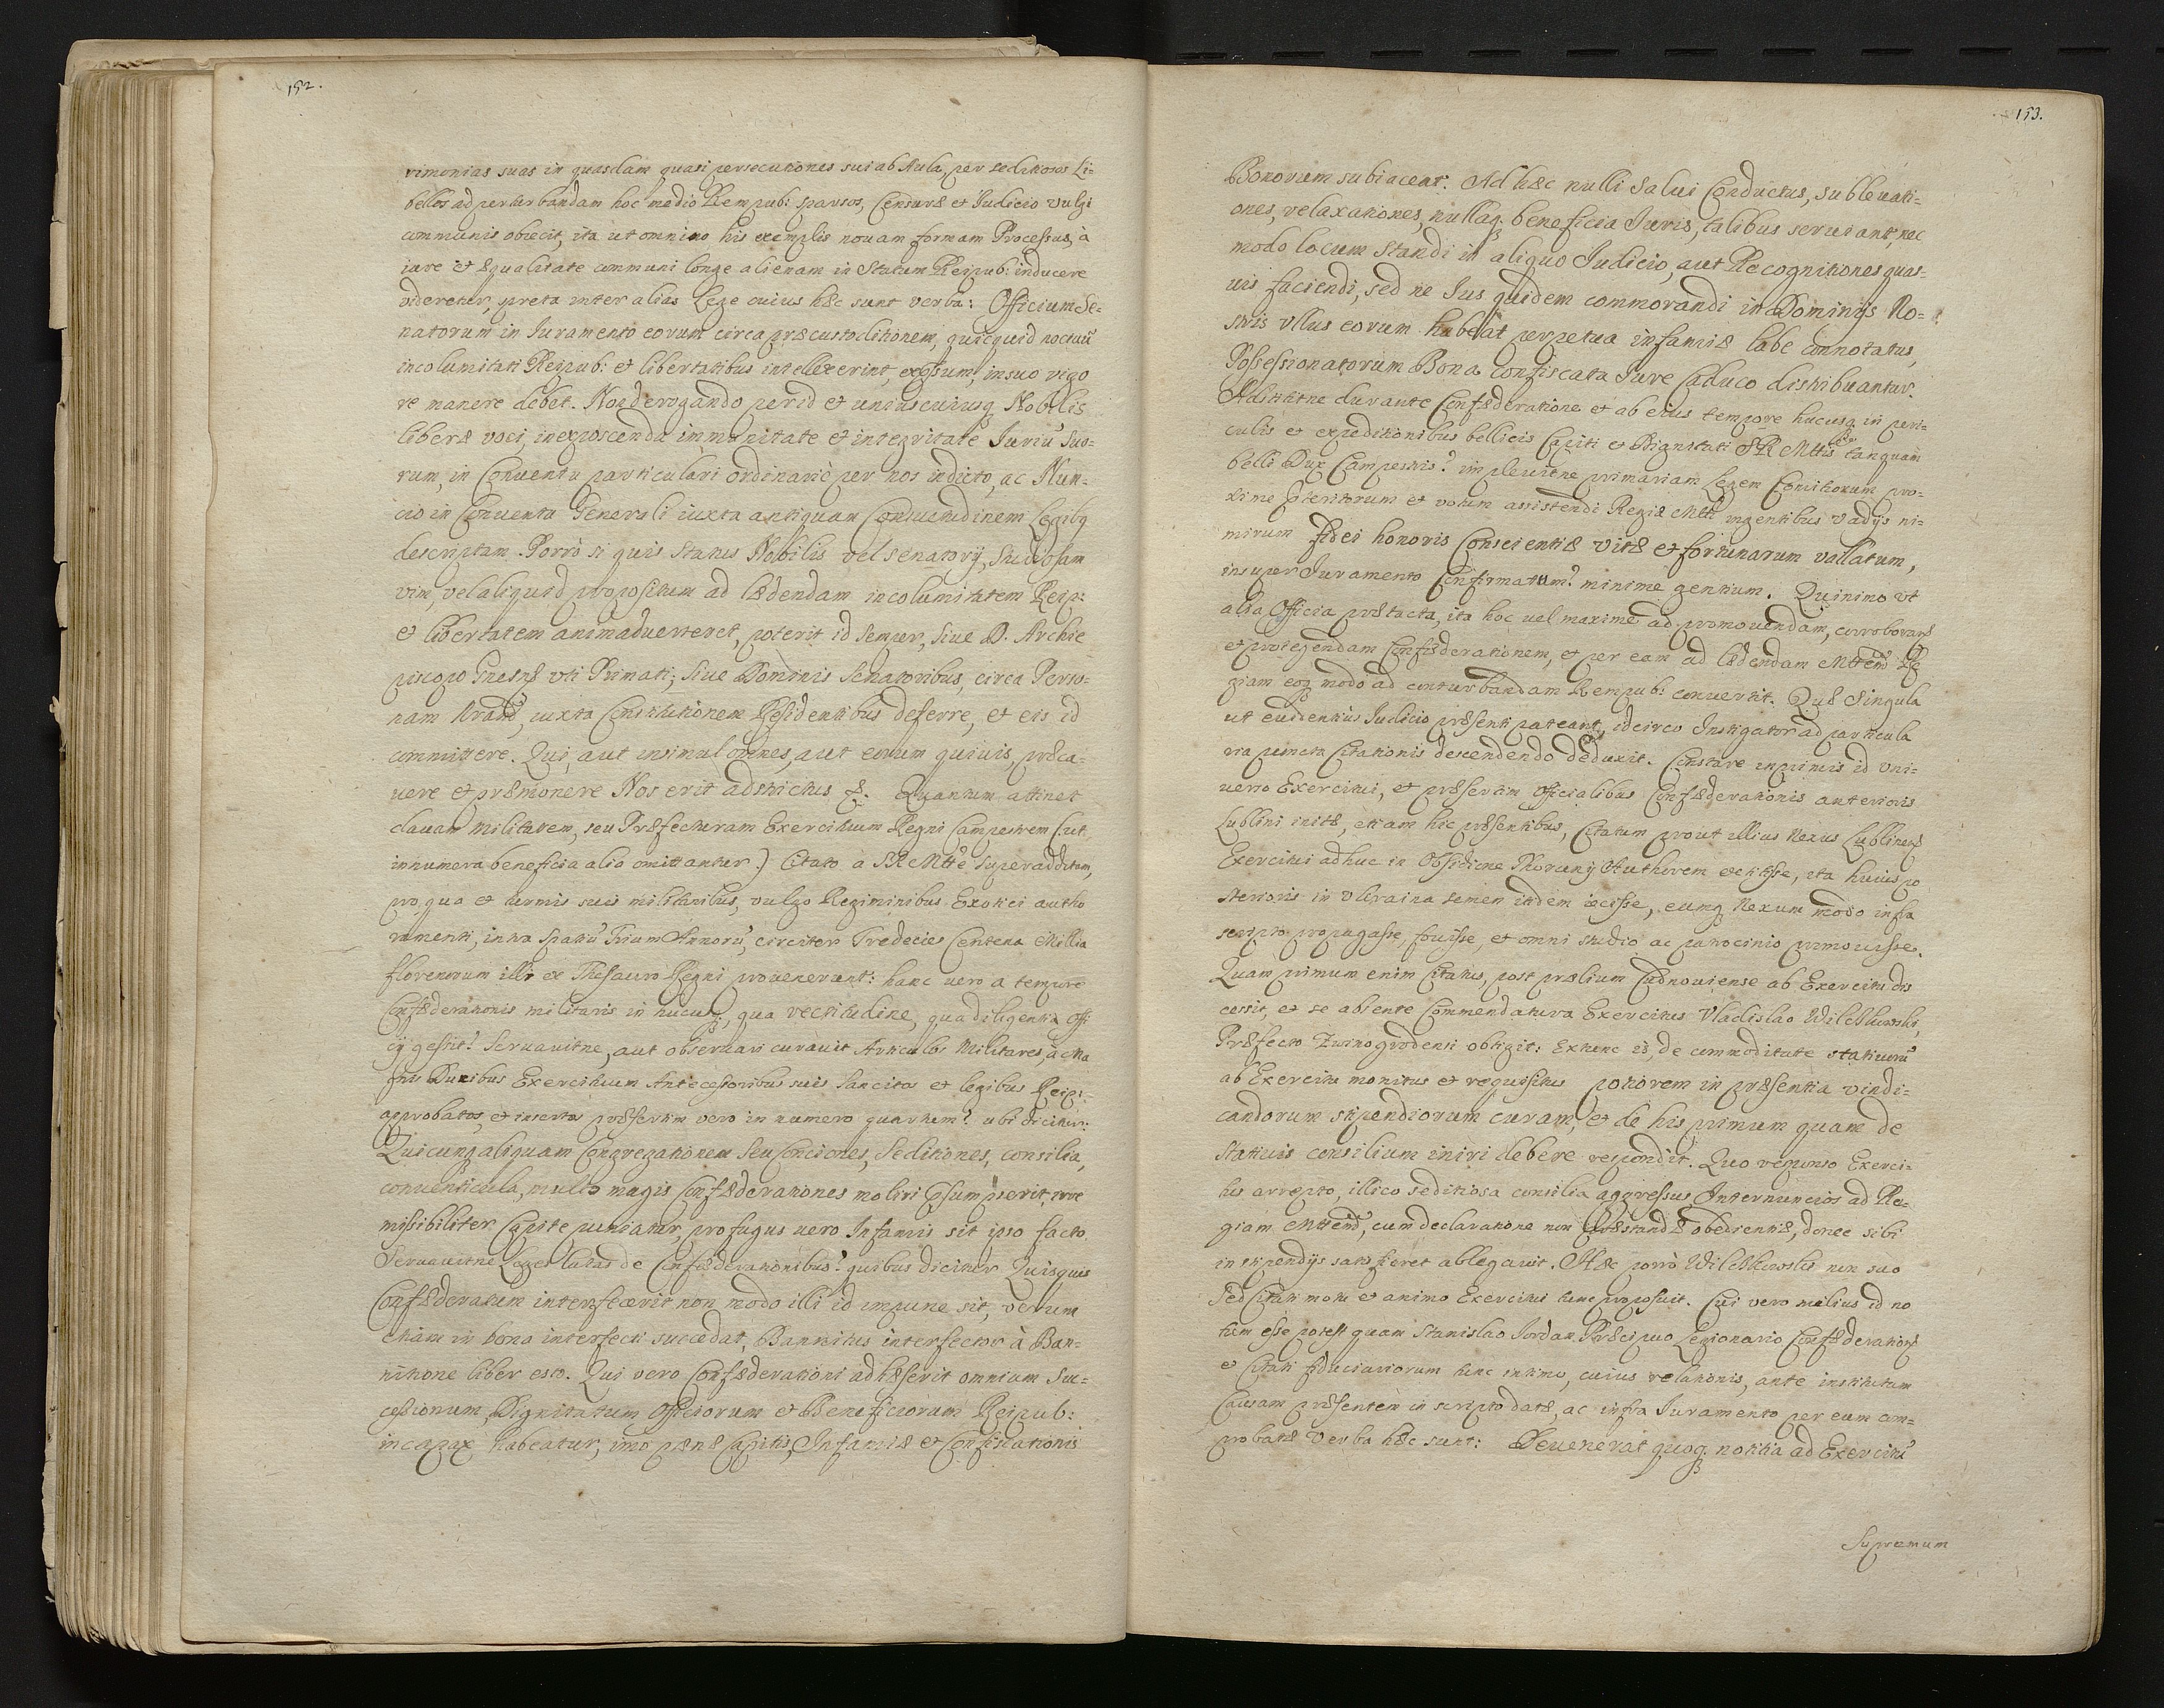 152.
rimonias suas in quasdam quasi persecutiones sui ab Aula, per seditiosos Li-
bellos ad perturbandam hoc medio Rempub: sparsos, Censuræ et Iudicio vulgi
communis obiecit, ita ut omnino his exemplis nouam formam Processus, à
iure et æqualitate communi longe alienam in Statum Reipub: inducere
videretur, spreta inter alias Lege cuius hæc sunt verba: Officium Se-
natorum in Iuramento eorum circa præcustoditionem, quicquid nociuũ
incolumitati Reipub: et libertatibus intellexerint, in suo vigo
re manere debet. Non derogando per id et uniuscuiusq Nobilis
liberæ voci, in exposcenda immunitate et integritate Iuriũ suo-
rum, in Conuentu particulari ordinariè per nos indicto, ac Nun-
cio in Conuentu Generali iuxta antiquam Consuetudinem Legibq
descriptam. Porrò si quis Status Nobilis vel senatorij, studiosam
vim, vel aliquid propositum ad lædendam incolumitatem Reip:
et libertatem animaduerteret, poterit id semper, siue D. Archie
piscopo Gnesnæ vti Primati; siue Dominis Senatoribus, circa Perso-
nam ñrand, iuxta Constitutionem Residentibus deferre, et eis id
committere. Qui, aut insimul omnes, aut eorum quiuis, præca-
uere et præmonere Nos erit adstrictus &. Quantum attinet
clauam militarem, seu Præfecturam Exercituum Regni Campestrem (ut
innumera beneficia alia omittantur) Citato a SRMtte superadditam,
pro qua et turmis suis militaribus, vulgo Regiminibus Exotici autho
ramenti, intra spatiũ Trium Annorũ, circiter Tredecies Centena Millia
florenorum illi ex Thesauro Regni prouenerunt: hanc uero a tempore
Confæderationis militaris in hucusq, qua rectitudine, qua diligentia offi
cij gessit? Seruauitne, aut obseruari curauit Articulos Militares, à Ma
gnis Ducibus Exercituum Antecessoribus suis sancitos et legibus Reip:
approbatos, et insertos præsertim vero in numero quartum? ubi dicitur:
Quicunq aliquam Congregationem seu Conciones, Seditiones, consilia,
conuenticula, multo magis Confæderationes moliri præsumpserit, irre
missibiliter Capite puniatur, profugus uero Infamis sit ipso facto.
Seruauitne Leges latas de Confæderationibus? quibus dicitur Quisquis
Confæderatum interfecerit non modo illi id impune sit, verum
etiam in bona interfecti succedat, Bannitus interfector à Ban-
nitione liber esto. Qui vero Confæderationi adhæserit omnium Suc-
cessionum, Dignitatum Officiorum et Beneficiorum Reipub:
incapax habeatur, imo pænæ Capitis, Infamiæ et Confiscationis
153.
Bonorum subiaceat. Ad hæc nulli Salui Conductus, subleuati-
ones, relaxationes, nullaq beneficia Iuris, talibus seruiant, nec
modo locum standi in aliquo Iudicio, aut Recognitiones quas-
uis faciendi, sed ne Ius quidem commorandi in Dominijs No-
stris vllus eorum habeat perpetua infamiæ labe connotatus,
Possessionatorum Bona Confiscata Iure Caduco distribuantur.
Adstititne durante Confæderatione et ab eius tempore hucusq in peri-
culis et expeditionibus bellicis Capiti et Dignitati SRMttis tanquam
belli Dux Campestris? impleuitne primariam Legem Comitiorum pro-
xime præteritorum et votum assistendi Regiæ Mtti ingentibus vadijs ni-
mirum fidei honoris Conscientiæ vitæ et fortunarum vallatum,
insuper Iuramento Confirmatum? minime gentium. Quinimo ut
alia Officia prætacta, ita hoc uel maxime ad promouendam, corroborand
et protegendam Confæderationem, et per eam ad lædendam Mttem Re
giam eoq modo ad conturbandam Rempub: conuertit. Quæ singula
ut euidentius Iudicio præsenti pateant, idcirco Instigator ad particula
ria puncta Citationis descendendo deduxit. Constare inprimis id vni-
uerso Exercitui, et præsertim officialibus Confæderationis anterioris
Lublini initæ, etiam hic præsentibus, Citatum prout illius Nexus Lublinens
Exercitui adhuc in Obsidione Thorunij Authorem extitisse, ita huius po
sterioris in Vkraina semen itidem iecisse, eumq Nexum modo infra
scripto propagasse, fouisse, et omni studio ac patrocinio promouisse.
Quam primum enim Citatus, post prælium Cudnouiense ab Exercitu dis
cessit, et se absente Commendatura Exercitus Vladislao Wilczkowski,
Præfecto Zwinogrodensi obtigit: Extunc is, de commoditate statiuorũ
ab Exercitu monitus et requisitus potiorem in præsentia vindi-
candorum stipendiorum curam, et de his primum quam de
statiuis consilium iniri debere respondit. Quo responso Exerci-
tus arrepto, illico seditiosa consilia aggressus Internuncios ad Re-
giam Mttem, cum declaratione non præstandæ obedientiæ, donec sibi
in stipendijs satisfieret ablegauit. Hæc porrò Wilczkowski non suo
sed Citati motu et animo Exercitui tunc proposuit. Cui vero melius id no
tum esse potest quam Stanislao Iordan Præcipuo Legionario Confæderationis
et Citati fiduciariorum tunc intimo, cuius relationis, ante institutam
Causam præsentem in scripto datæ, ac infra Iuramento per eum com-
probatæ verba hæc sunt: Deuenerat quoq notitia ad Exercitũ
Supremum